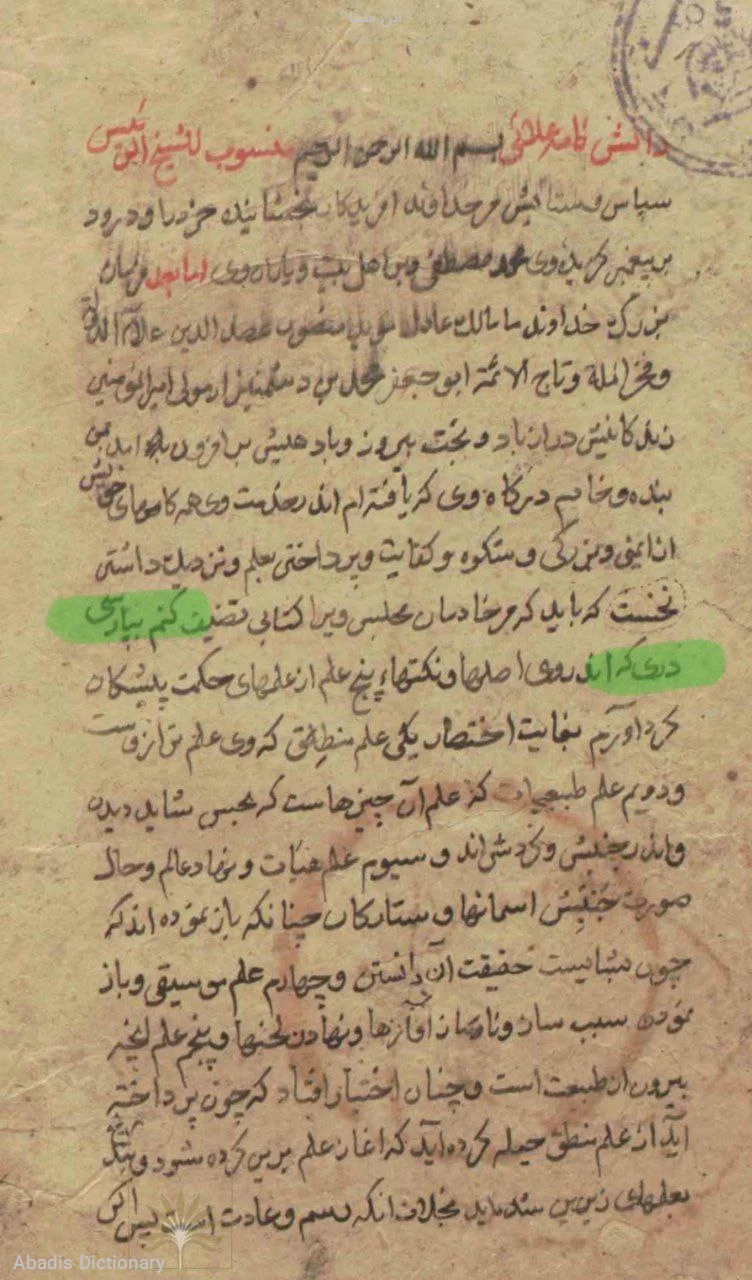 ابن سینا
دانش نامه علائی بسم الله الرحمن الرحیم منسوب للشیخ الرئیس
سپاس و ستایش مر خداوند آفریدکار بخشاینده خرد را و درود
بر پیغمبر کزیده وی محمد مصطفی و بر اهل بیت و یاران وی اما بعد فرمان
بزرک خداوند ما ملک عادل مؤید منصور عضد الدین علاء الدوله
و فخر الملة و تاج الائمة ابو جعفر محمد بن دشمنزیار مولی امیر المؤمنین
زندکانیش دراز باد و بخت پیروز و پادهشیش بر افزون آمد بمن
بنده و خادم درکاه وی که یافته ام اندر خدمت وی همه کامهای خویش
از ایمنی و بزرکی و شکوه و کفایت و پرداختن بعلم و نزدیک داشتن
نخست که باید که مر خادمان مجلس ویرا کتابی تصنیف کنم بپارسی
دری که اندر وی اصلها و نکتهاء پنج علم از علمهای حکمت پیشینکان
کرد آورم بغایت اختصار یکی علم منطق که وی علم ترازوست
و دویم علم طبیعیات که علم آن چیزهاست که بحس شاید دیدن
و اندر جنبش و کردش اند و سیوم علم هیات و نهاد عالم و حال
صورت جنبش اسمانها و ستارکان چنانکه باز نموده اند که
چون شایست حقیقت آن دانستن و چهارم علم موسیقی و باز
نمودن سبب ساز و ناساز آوازها و نهادن لحنها و پنجم علم آنچه
بیرون از طبیعت است و چنان اختیار افتاد که چون پرداخته
آید از علم منطق حیله کرده آید که اغاز علم برین کرده شود و بتدریج
بعلمهای زیرین شده اید بخلاف انکه رسم و عادت است پس اکر
Abadis Dictionary